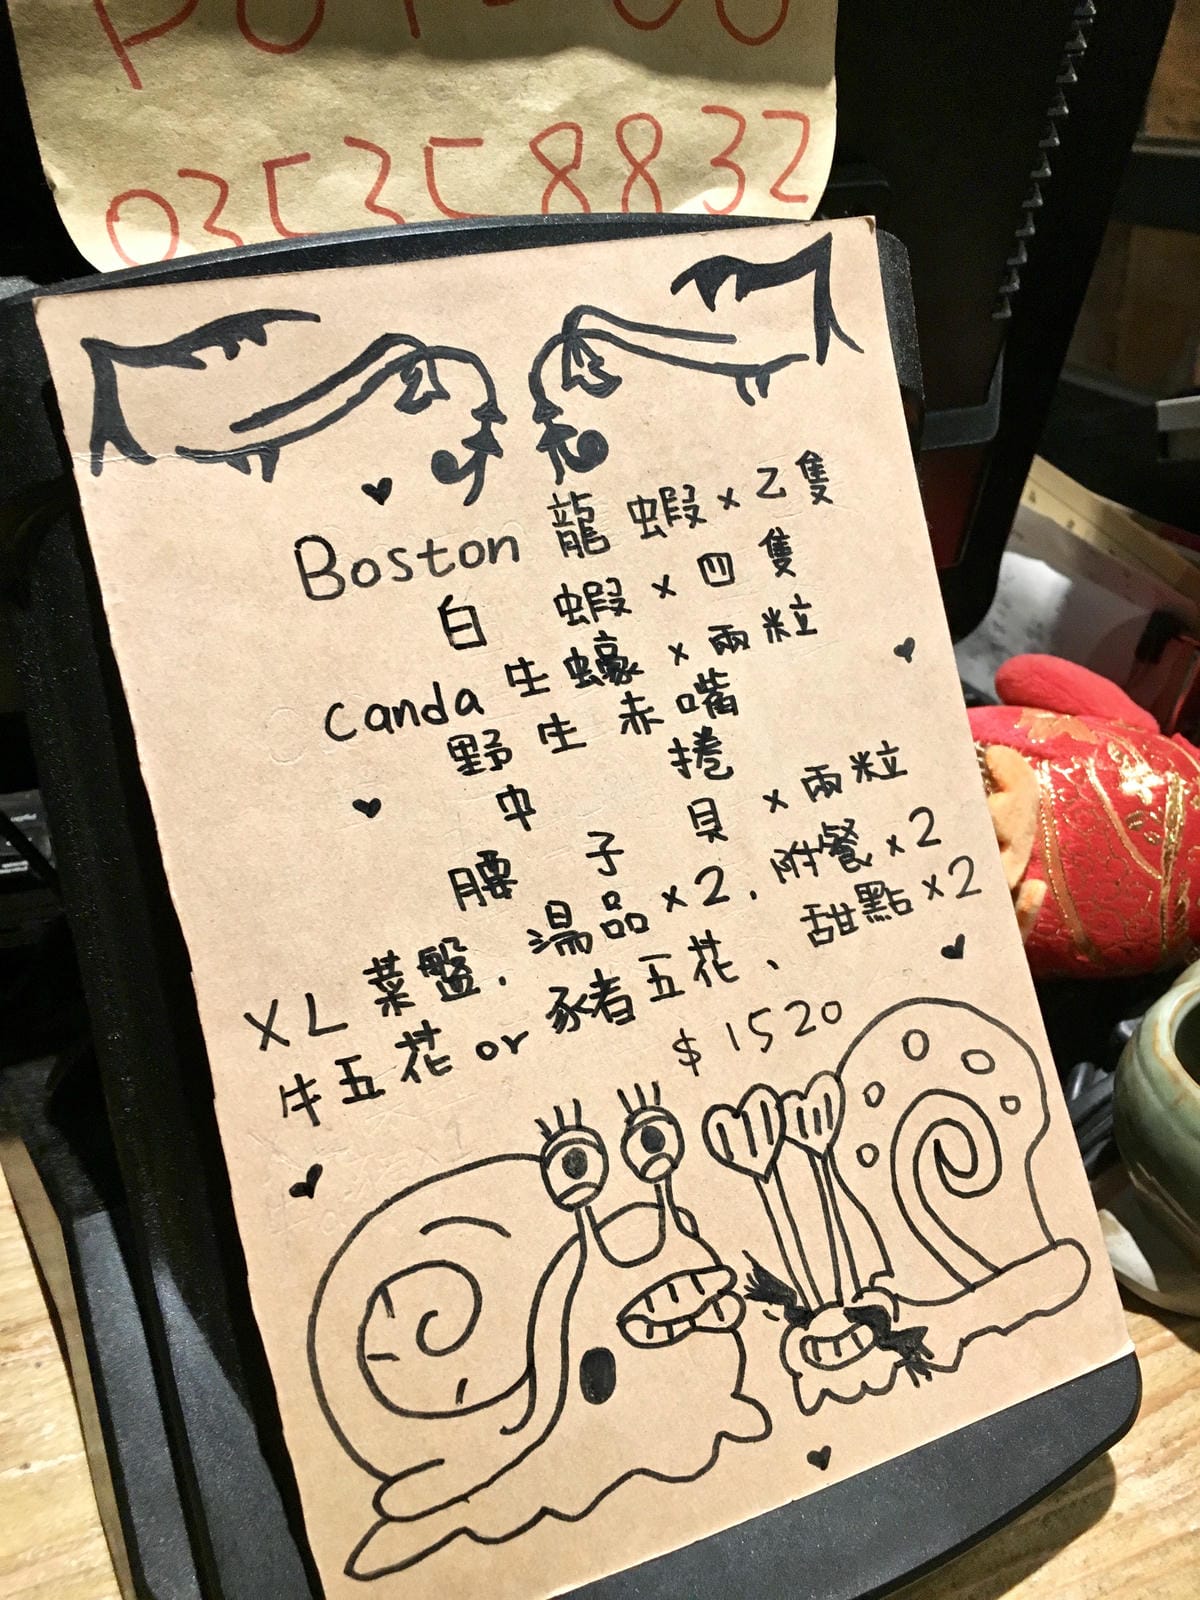 03535 8832
Boston 龍蝦 x 乙隻
白蝦 x 四隻
canda 生蠔 x 兩粒
野生赤嘴
中捲
腰子貝 x 兩粒
XL 菜盤. 湯品 x 2. 附餐 x 2
牛五花 or 豬五花、甜點 x 2
$ 1520